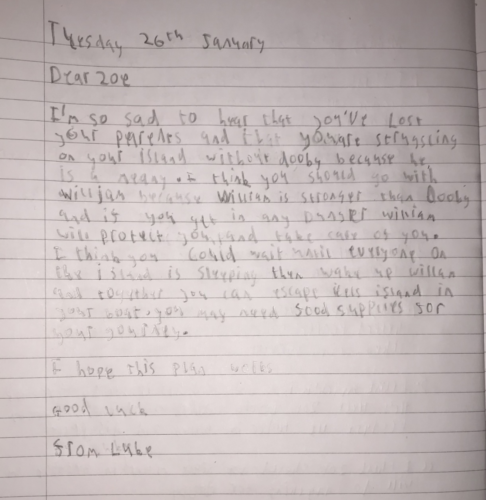 Tuesday 26th January
Dear Zoe
I'm so sad to hear that you've lost
your perentes and that you are struggling
on your island without dooby because he
is a meany. I think you should go with
william because William is stronger than Dooby
and if you get in any william
will protect you, and take care of you.
I think you could wait until everyone on
the island is sleeping then wake up willan
and together you can escape island in
your boat. you may need food supplies for
your
I hope this plan works
Good luck
from Luke